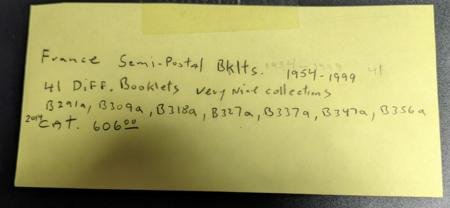 France Semi-Postal Bklts. 1954-1999 41
1954-1999
41 Diff. Booklets very nice collections
B291a, B309a, B318a, B327a, B337a, B347a, B356a
2014 CAT. 606.00